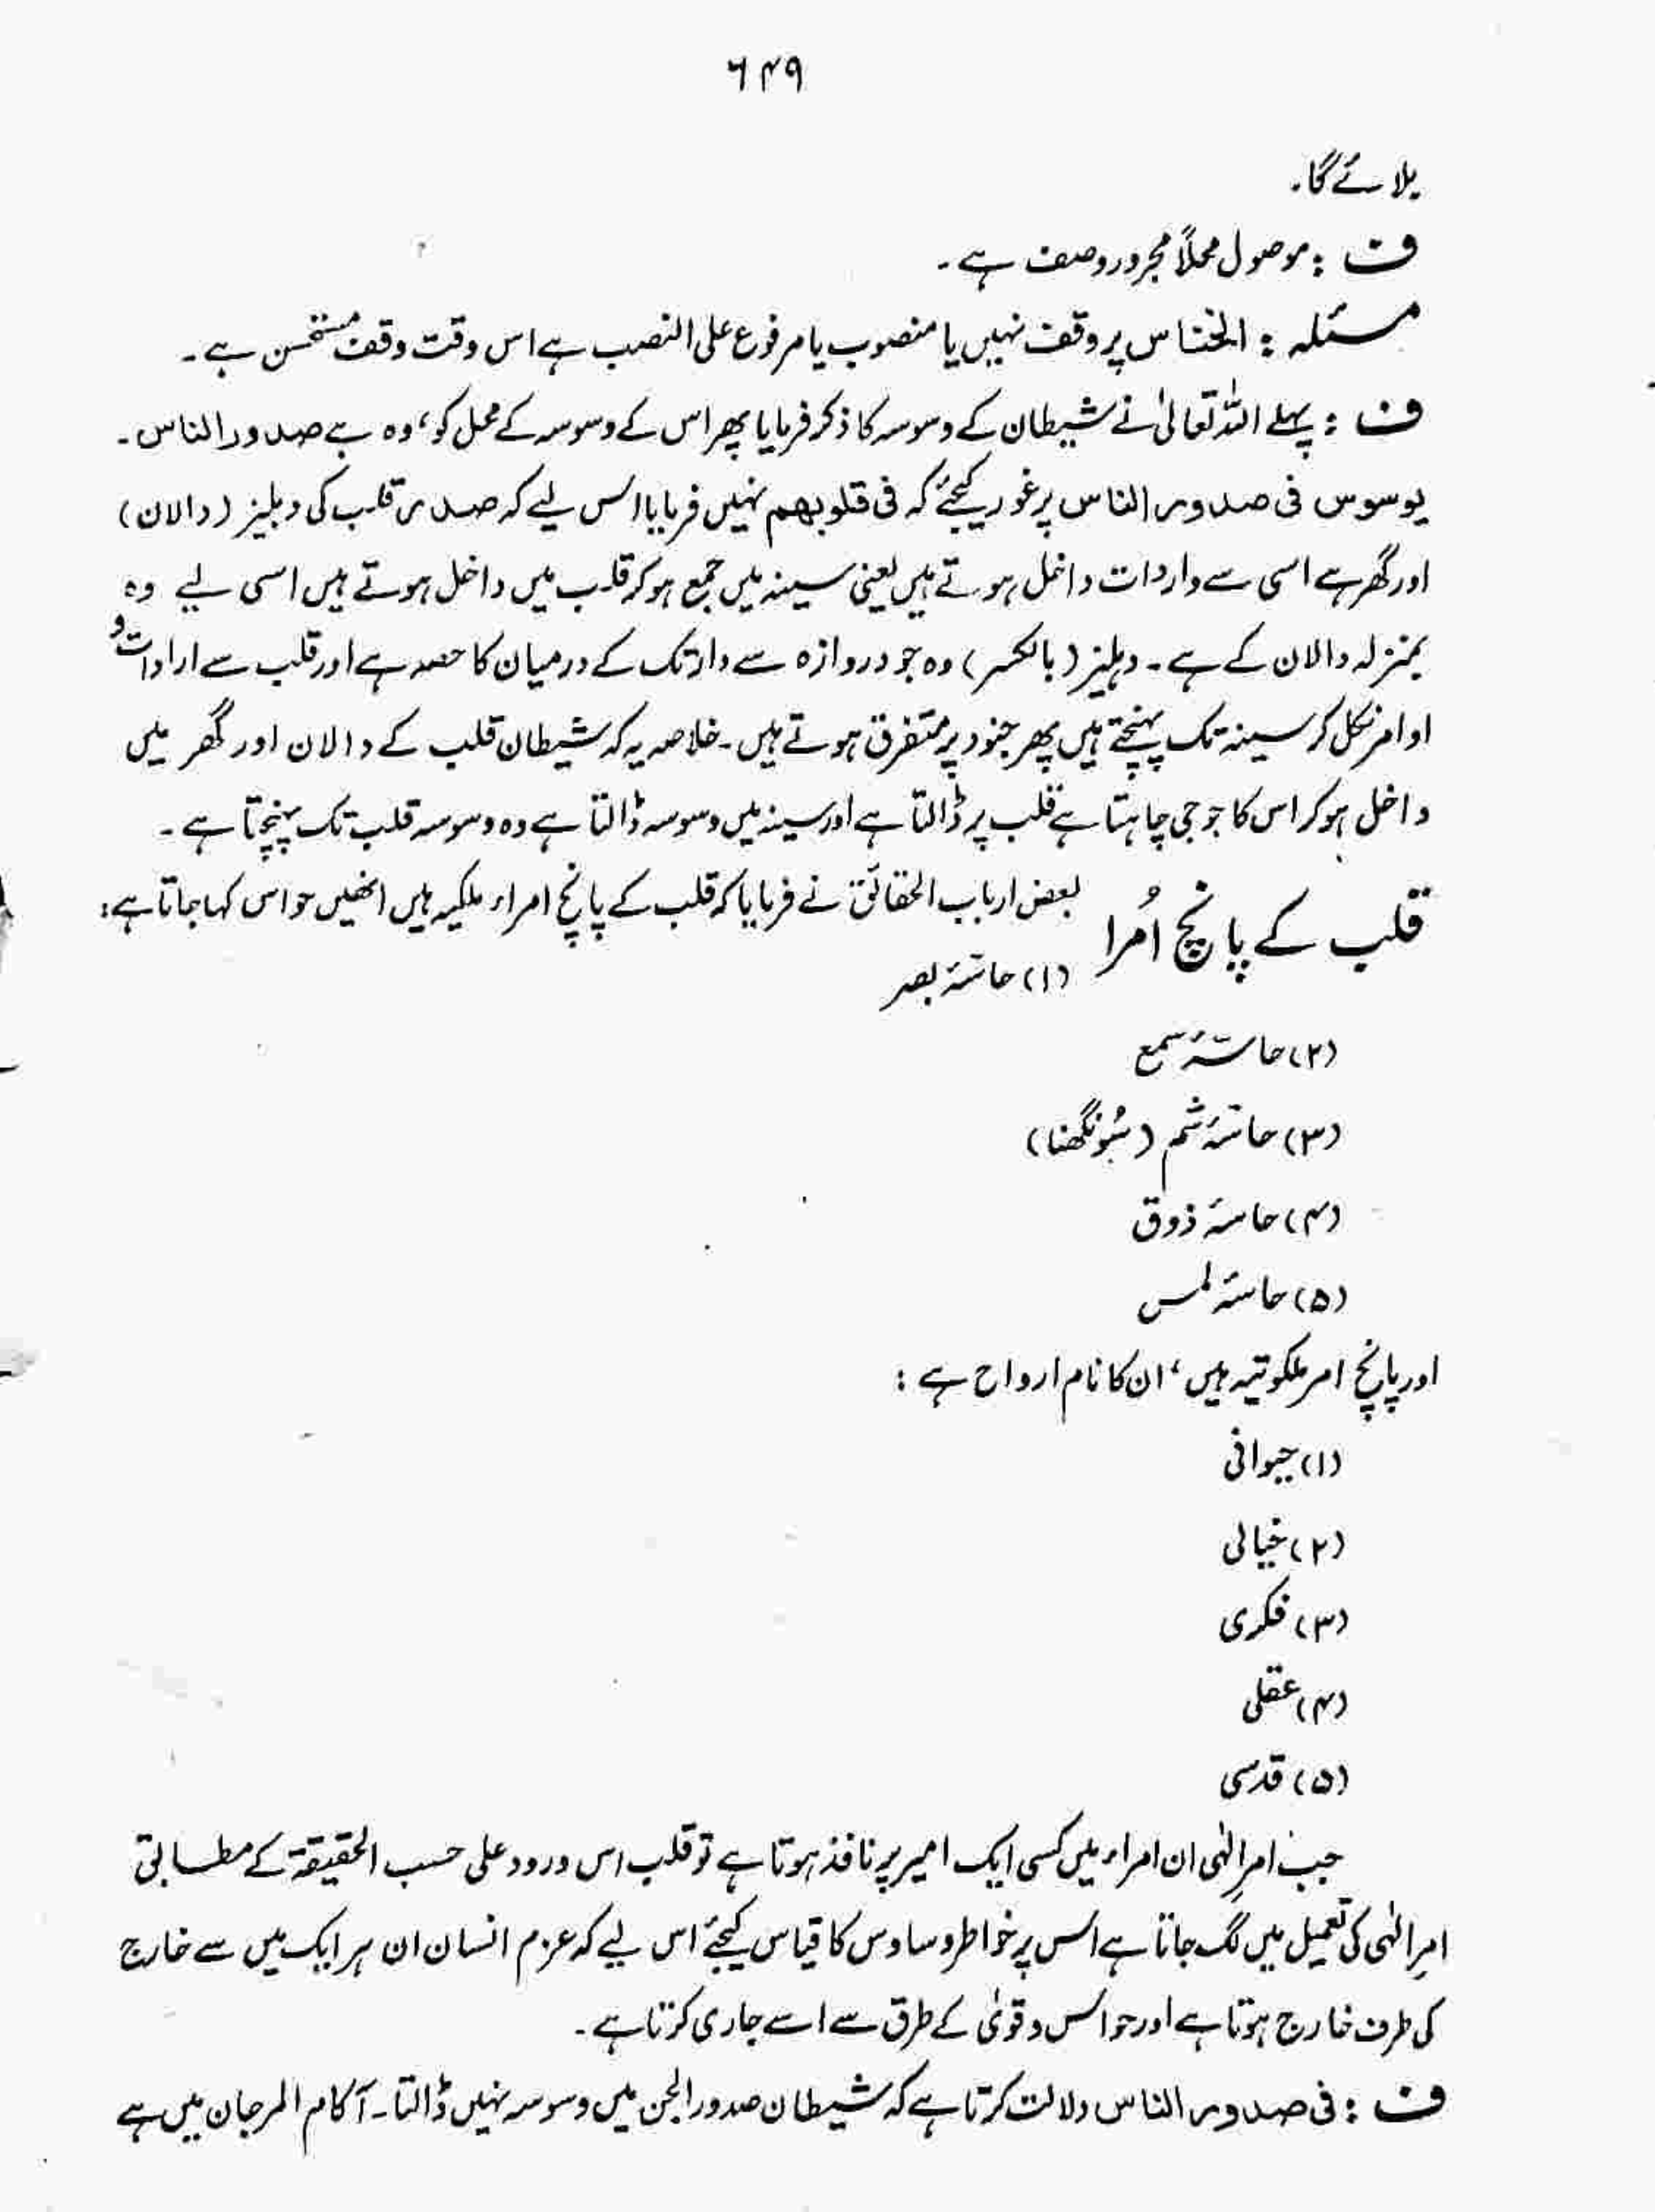 ۶۴۹
پلائے گا۔
ف : موصول محلاً مجرور وصف ہے۔
مسئلہ : الخناس پر وقف نہیں یا منصوب یا مرفوع علی النصب ہے اس وقت وقف مستحسن ہے۔
ف : پہلے اللہ تعالیٰ نے شیطان کے وسوسہ کا ذکر فرمایا پھر اس کے وسوسہ کے محل کو، وہ ہے صدور الناس۔
یوسوس فی صدور الناس پر غور کیجئے کہ فی قلوبھم نہیں فرمایا اس لیے کہ صدر قلب کی دہلیز (دالان)
اور گھر ہے اسی سے واردات داخل ہوتے ہیں یعنی سینہ میں جمع ہو کر قلب میں داخل ہوتے ہیں اسی لیے وہ
بمنزلہ دالان کے ہے۔ دہلیز (بالکسر) وہ جو دروازہ سے دار تک کے درمیان کا حصہ ہے اور قلب سے ارادات و
اوامر نکل کر سینہ تک پہنچتے ہیں پھر جنود پر متفرق ہوتے ہیں۔ خلاصہ یہ کہ شیطان قلب کے دالان اور گھر میں
داخل ہو کر اس کا جو جی چاہتا ہے قلب پر ڈالتا ہے اور سینہ میں وسوسہ ڈالتا ہے وہ وسوسہ قلب تک پہنچتا ہے۔
قلب کے پانچ اُمرا
بعض ارباب الحقائق نے فرمایا کہ قلب کے پانچ امراء ملکیہ ہیں انھیں حواس کہا جاتا ہے:
(۱) حاسّۂ بصر
(۲) حاسّۂ سمع
(۳) حاسّۂ شم (سُونگھنا)
(۴) حاسۂ ذوق
(۵) حاسۂ لمس
اور پانچ امر ملکوتیہ ہیں، ان کا نام ارواح ہے :
(۱) حیوانی
(۲) خیالی
(۳) فکری
(۴) عقلی
(۵) قدسی
جب امرِ الٰہی ان امراء میں کسی ایک امیر پر نافذ ہوتا ہے تو قلب اس ورود علی حسب الحقیقۃ کے مطابق
امرِ الٰہی کی تعمیل میں لگ جاتا ہے اس پر خواطر وساوس کا قیاس کیجئے اس لیے کہ عزم انسان ان ہر ایک میں سے خارج
کی طرف خارج ہوتا ہے اور حواس و قویٰ کے طرق سے اسے جاری کرتا ہے۔
ف : فی صدور الناس دلالت کرتا ہے کہ شیطان صدور الجن میں وسوسہ نہیں ڈالتا۔ آکام المرجان میں ہے